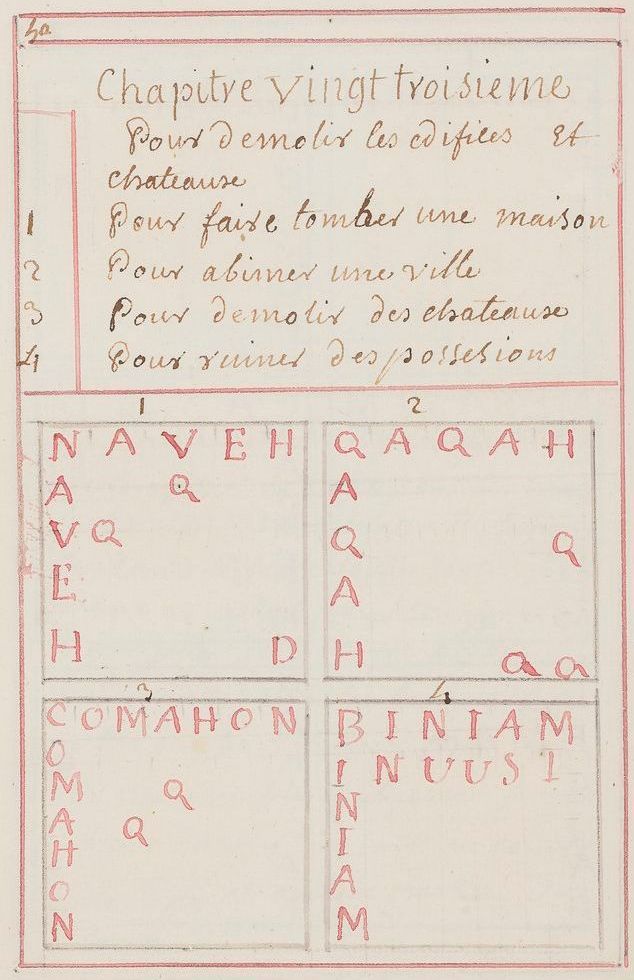 ha
Chapitre vingt troisieme
Pour demolir les edifices Et
chateause
1 Pour faire tomber une maison
2 Pour abimer une ville
3 Pour demolir des chateause
4 Pour ruiner des possesions
1 2
NAVEH QAQAH
A Q A
VQ Q Q
E A
H D H a a
3 4
COMAHON BINIAM
O INUUSI
M Q N
A Q I
H A
O M
N